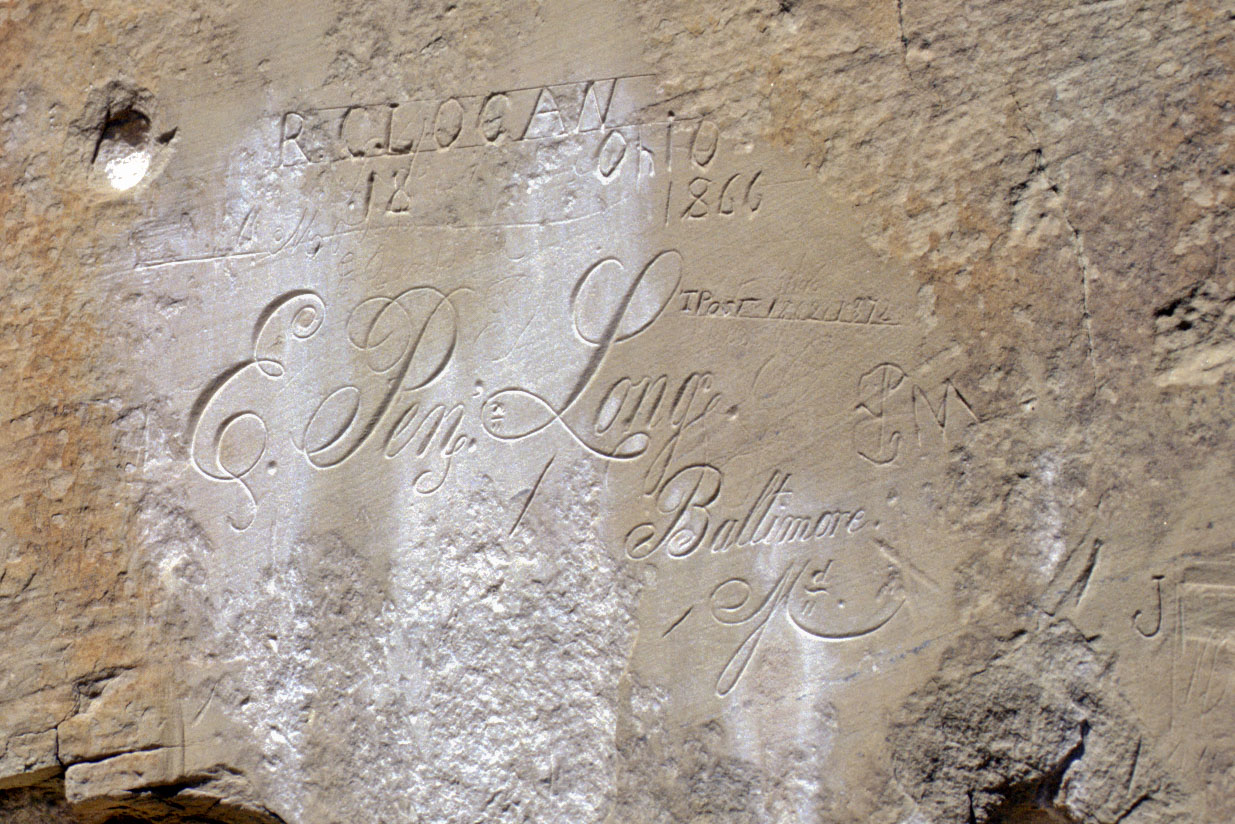 R. C. LOGAN
OhiO
18 1866
T Post
E. Penⁿ Long.
PM
Baltimore.
Mᵈ.
J